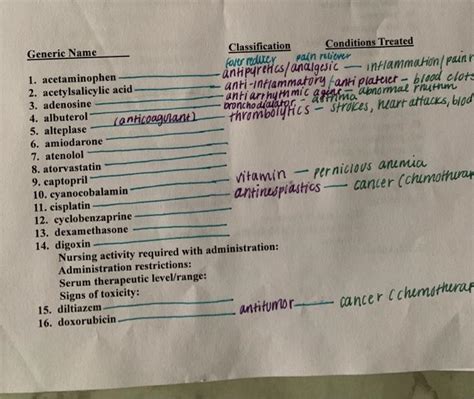 Generic Name Classification Conditions Treated
fever reducer pain reliever
1. acetaminophen antipyretics/analgesic — inflammation/pain r
2. acetylsalicylic acid anti-inflammatory/antiplatelet – blood clots
3. adenosine antiarrhythmic agent – abnormal rhythm
4. albuterol bronchodialator – asthma
5. alteplase (anticoagulant) thrombolytics – strokes, heart attacks, blood
6. amiodarone
7. atenolol
8. atorvastatin
9. captopril
10. cyanocobalamin vitamin — pernicious anemia
11. cisplatin antineoplastics — cancer (chemotherap
12. cyclobenzaprine
13. dexamethasone
14. digoxin
Nursing activity required with administration:
Administration restrictions:
Serum therapeutic level/range:
Signs of toxicity:
15. diltiazem
16. doxorubicin antitumor — cancer (chemotherap